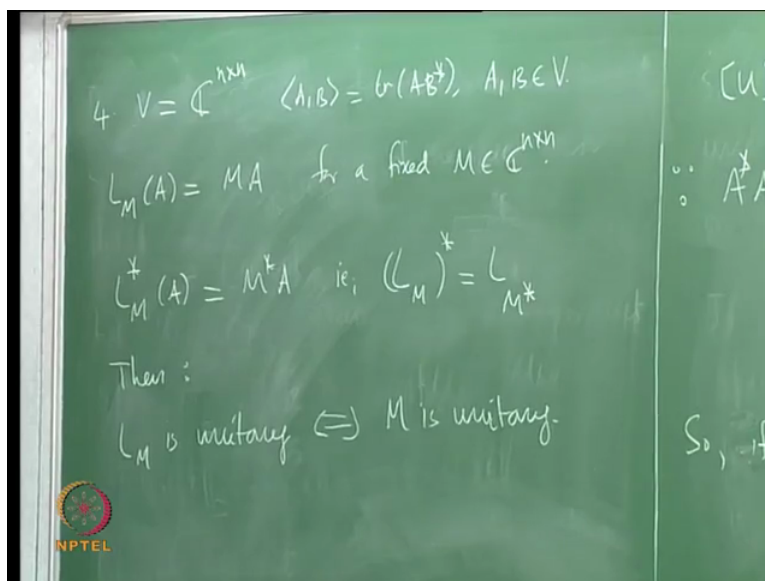 4. V = ℂ^{n×n} ⟨A,B⟩ = tr(AB*), A, B ∈ V.
L_M(A) = MA for a fixed M ∈ ℂ^{n×n}.
L*_M(A) = M*A ie, (L_M)* = L_{M*}
Then :
L_M is unitary ⟺ M is unitary.
[U]
∵ A*A
So, if
NPTEL